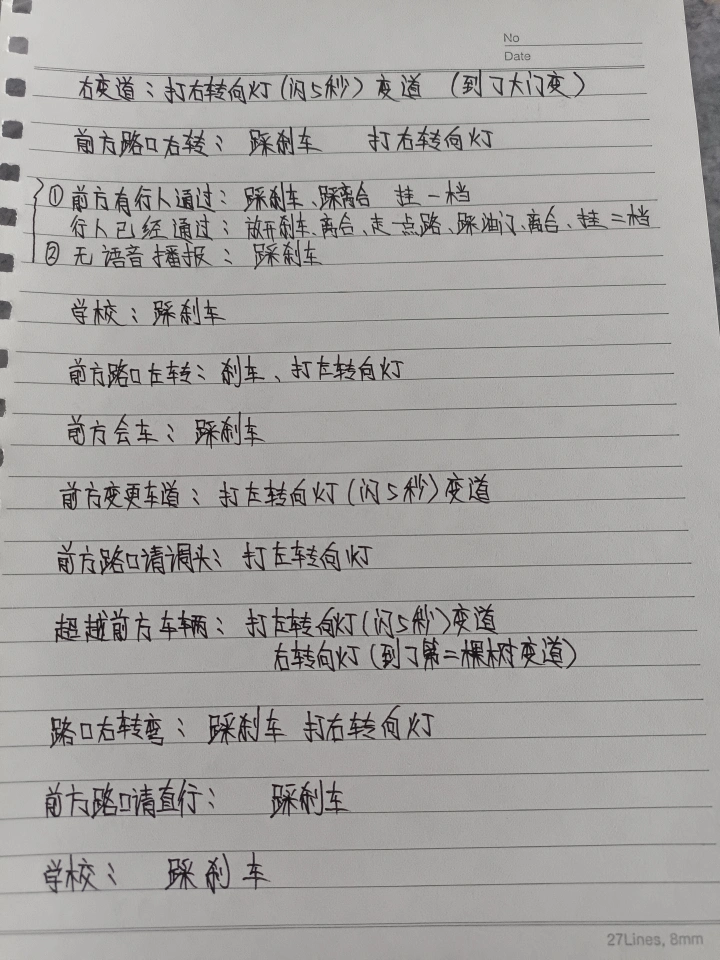 No
Date
右变道：打右转向灯（闪5秒）变道 （到了大门变）
前方路口右转：踩刹车 打右转向灯
①前方有行人通过：踩刹车、踩离合 挂一档
行人已经通过：放开刹车、离合、走一点路、踩油门、离合、挂二档
②无语音播报：踩刹车
学校：踩刹车
前方路口左转：刹车、打左转向灯
前方会车：踩刹车
前方变更车道：打左转向灯（闪5秒）变道
前方路口请调头：打左转向灯
超越前方车辆：打左转向灯（闪5秒）变道
右转向灯（到了第二棵树变道）
路口右转弯：踩刹车 打右转向灯
前方路口请直行：踩刹车
学校：踩刹车
27Lines, 8mm